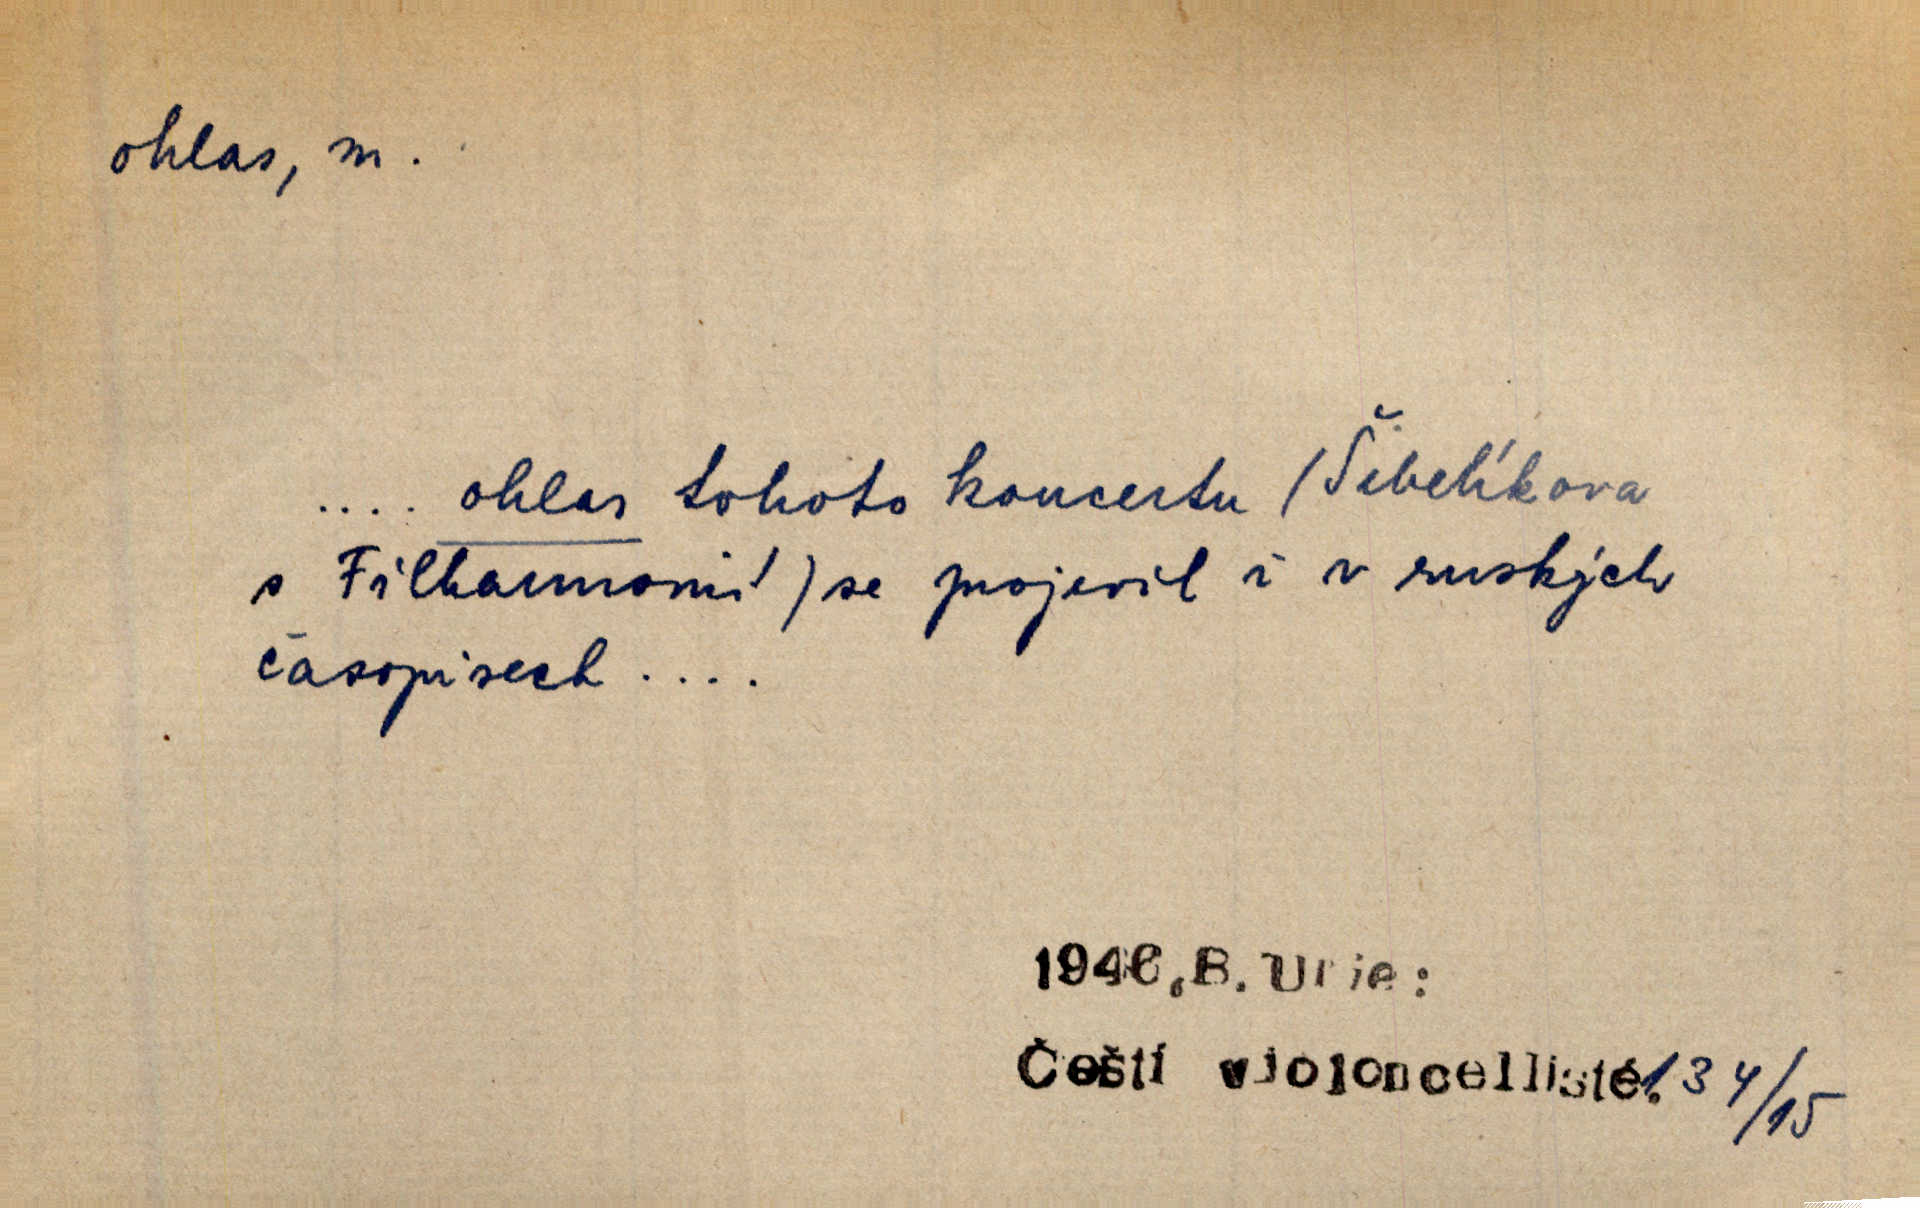 ohlas, m.
.... ohlas tohoto koncertu (Šibelíkova
s Filharmonií) se projevil i v ruských
časopisech ....
1946, B. Urie:
Čeští violoncellisté. 134/15